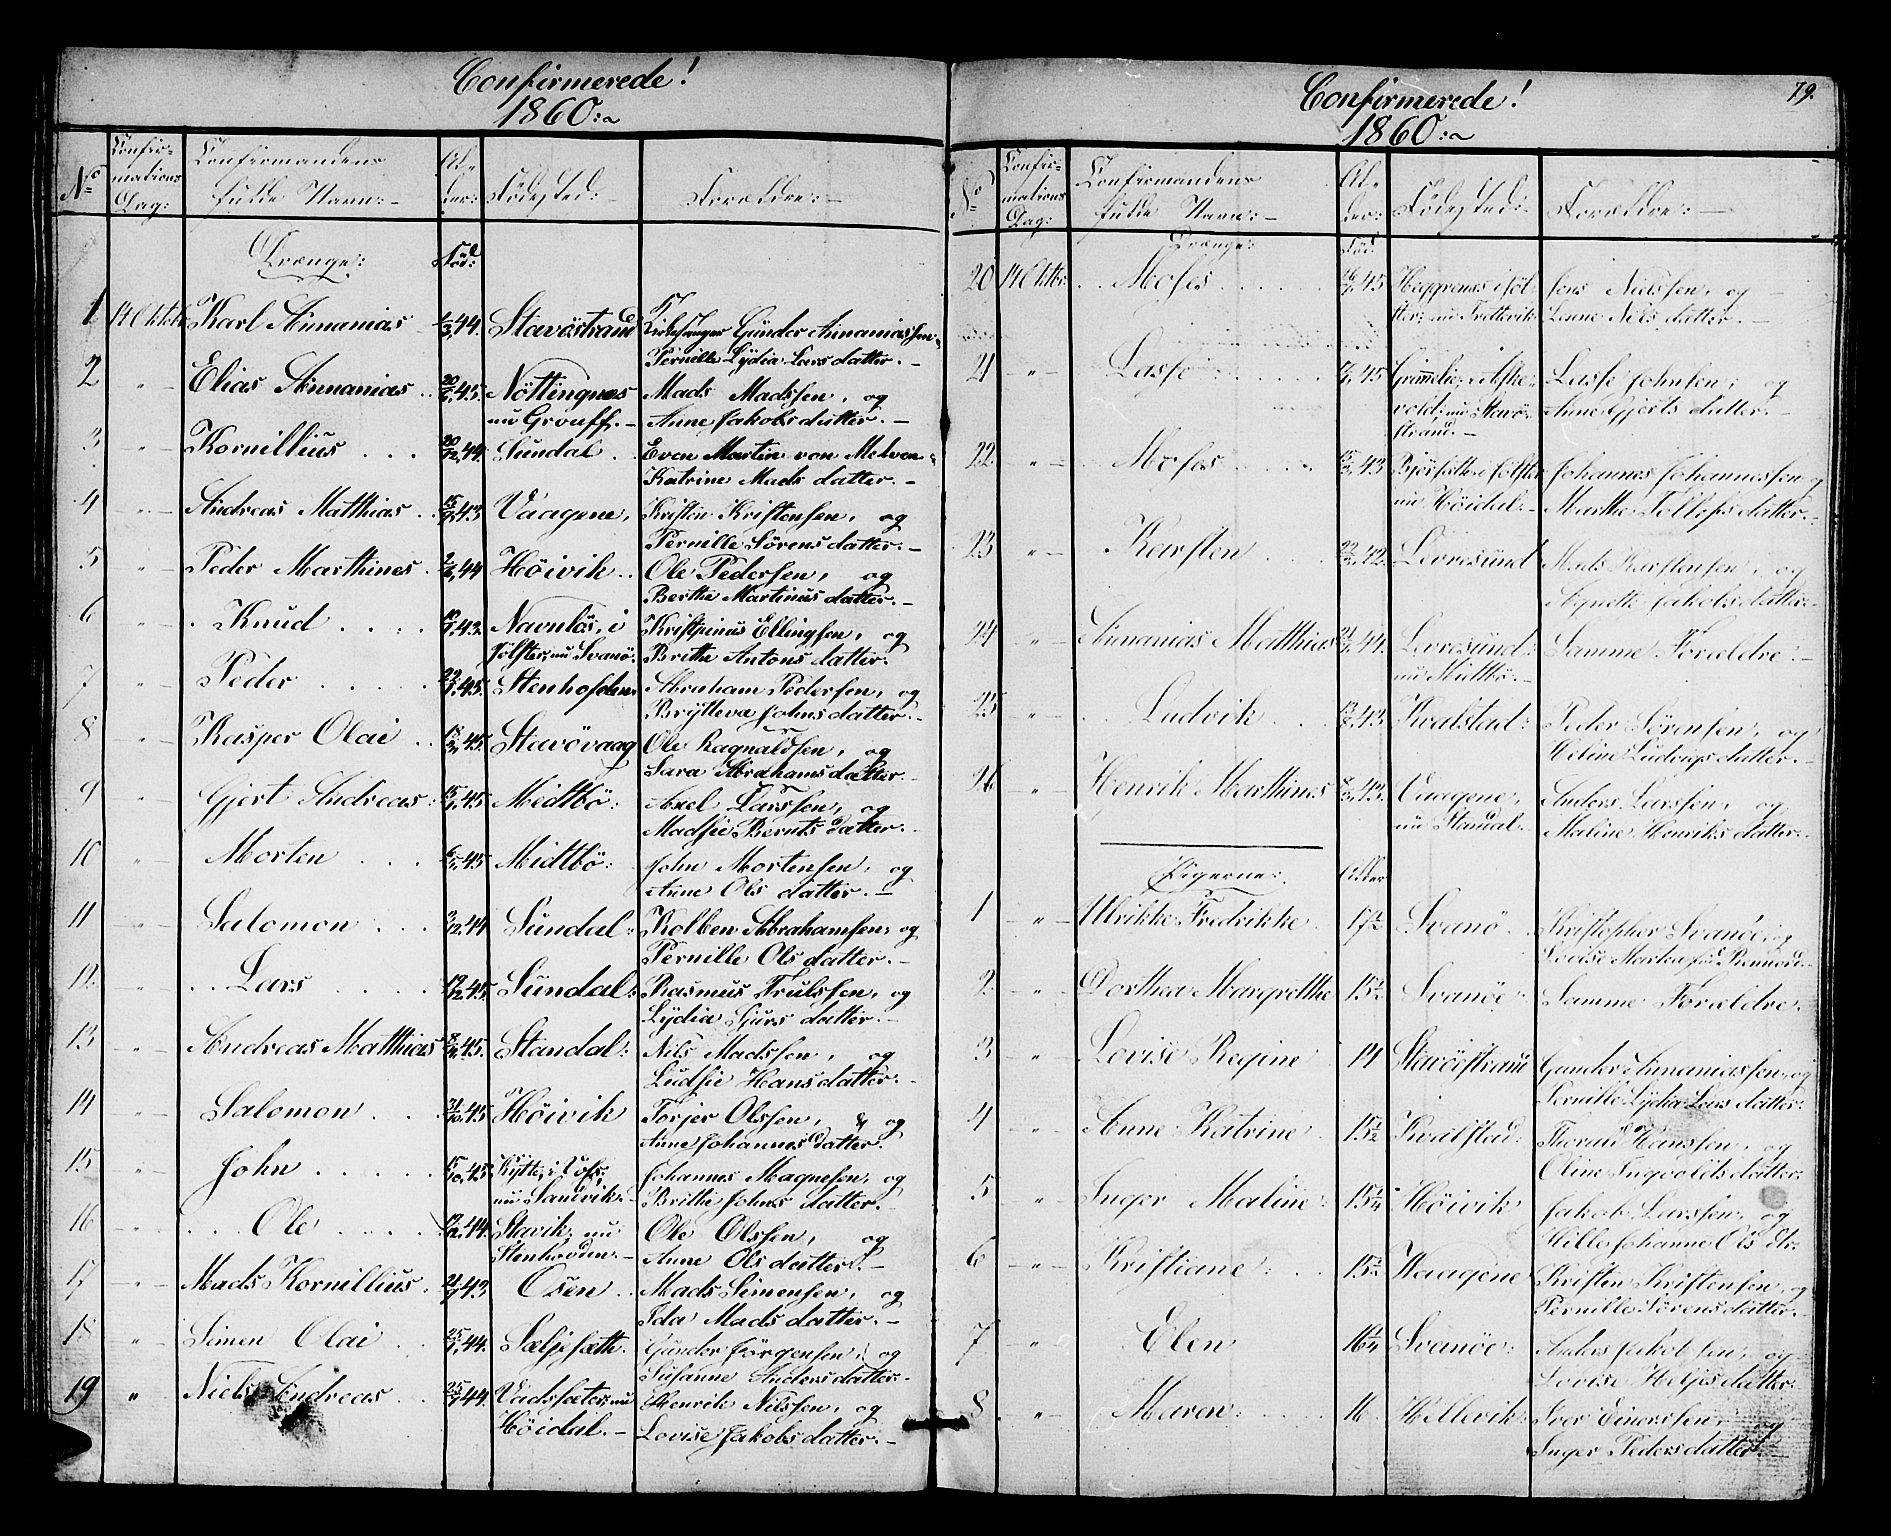 Confirmerede!
1860:
No Confir-
mations
Dag: Confirmandens
fulde Navn: Al-
der: Födested: Forældre:
Drænge: Föd:
1 14 Oktob: Karl Annanias 44. Stavöstrand Kirkesanger Gunder Annaniassen
Pernille Lydia Lars datter.
2 " Elias Annanias 45. Nöttingnæs Mads Madssen, og
nu Grouff. Anne Jakobs datter.
3 " Kornillius 44. Sundal Even Martin von Melvon
Katrine Mads datter.
4 " Andreas Matthias 43 Vaagene, Kristen Kristensen, og
Pernille Sörens datter.
5 " Peder Marthines 44 Höivik Ole Pedersen, og
Berthe Martinus datter.
6 " Knud 43. Navnlös, i Kristpinus Ellingsen, og
Jölster, nu Svanö. Brithe Antons datter.
7 " Peder 45. Stenhofden Abraham Pedersen, og
Brytteva Johns datter.
8 " Kasper Olai 45. Stavövaag Ole Ragnaldsen, og
Sara Abrahams datter.
9 " Gjert Andreas 45 Medtbö: Axel Larssen, og
Madsie Bernts datter.
10 " Morten 45 Midtbö: John Mortensen, og
Anne Ols datter.
11 " Salomon 44 Sundal: Kolben Abrahamsen, og
Pernille Ols datter.
12. " Lars 45. Sundal: Rasmus Trulssen, og
Lydia Sjurs datter.
13 " Andreas Matthias 45. Standal: Nils Madssen, og
Ludsie Hans datter.
14 " Salomon 45 Höivik Torjer Olssen, og
Anne Johannes datter.
15 " John 45 Kytte, i Vofs, Johannes Magnesen, og
nu Sandvik. Brithe Johns datter.
16 " Ole 44. Stavik, nu Ole Olssen, og
Stenhovden. Anne Ols datter.
17 " Mads Kornillius 43 Osen Mads Simensen, og
Ida Mads datter.
18 " Simen Olai 44. Sæljesæth. Gunder Jörgensen, og
Susanne Anders datter.
19 " Niels Andreas 44 Vadsæter, nu Henrik Nilssen, og
Höidal. Lovise Jakobs datter.
79.
Confirmerede!
1860:
No Confir-
mations
Dag: Confirmandens
fulde Navn: Al-
der: Födested: Forældre:
Drænge: Föd:
20 14 Oktbr: Moses 45 Heggrenæs i Jöl- Jens Nielssen, og
ster, nu Trettevik Lene Nils datter.
21 " Lasse 45 Aske- Lasse Johnsen, og
vold, nu Stavö- Anne Gjerts datter.
strand.
22 " Moses 43 Johannes Johannessen og
nu Höidal. Marthe Tollefs datter.
23 " Karsten 42. Levresund Mads Karstensen, og
Agnethe Jakobs datter.
24 " Annanias Matthias 44. Levresund: Samme Forældre.
nu Midtbö.
25 " Ludvik 43 Kvalstad: Peder Sörensen, og
Heline Ludvigs datter.
26 " Henrik Marthines 43. Vaagene, Anders Larssen, og
nu Standal. Maline Henriks datter.
Pigerne: Alder
1 " Ulrikke Fredrikke 17½ Svanö Kristopher Svanöe, og
Lovise Marken föd Rennord.
2 " Dorthea Margrethe 15½ Svanöe Samme Forældre.
3 " Lovise Regine 14 Stavöstrand Gunder Annaniassen, og
Pernille Lydia Lars datter.
4 " Anne Katrine 15½ Kvalstad: Thorud Hanssen, og
Oline Ingvolds datter.
5 " Inger Maline: 15¼ Höivik Jakob Larssen, og
Hille Johanne Ols dtr.
6 " Kristiane: 15½ Waagene Kristen Kristensen, og
Pernille Sörens datter.
7 " Elen 16¼ Svanöe: Anders Jakobsen, og
Lovise Heljes datter.
8 " Maren: 16 Hellevik: Iver Einerssen, og
Inger Peders datter.